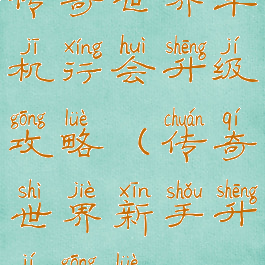 传奇世界单
jī xíng huì shēng jí
机行会升级
gōng lüè chuán qí
攻略（传奇
shì jiè xīn shǒu shēng
世界新手升
jí gōng lüè